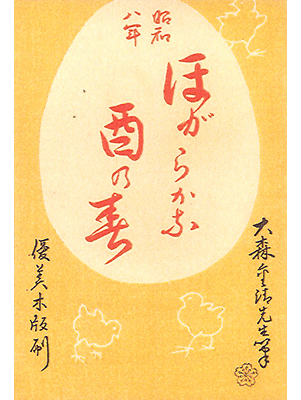 昭和
八年
ほがらかな
酉の春
大森先生筆
優美木版刷